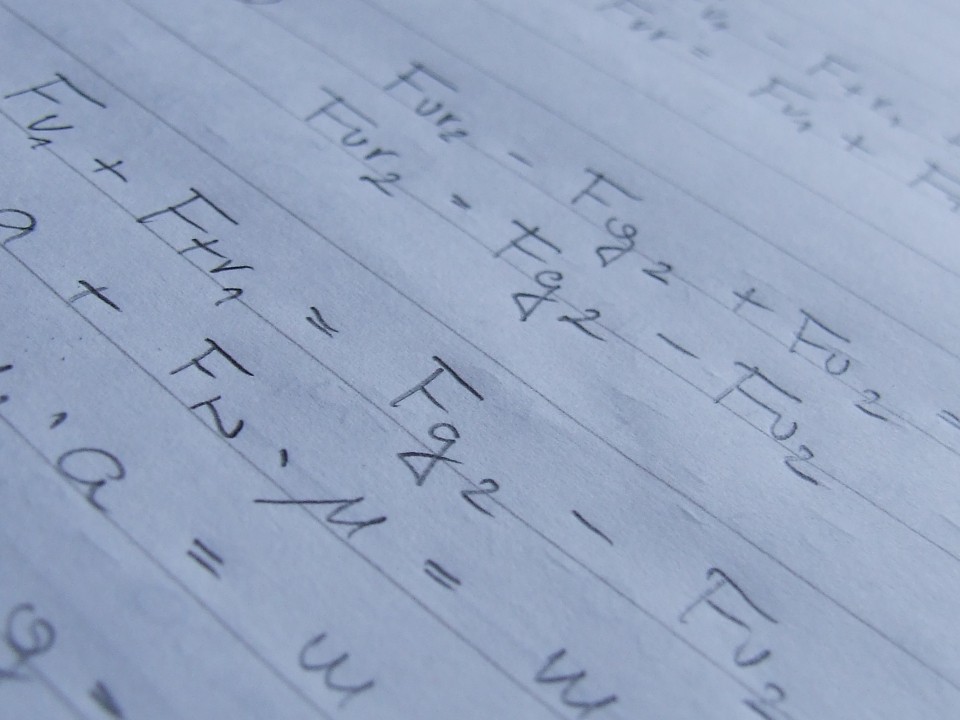 Fv₁ + Ftr₁
Fvr =
Fv₁ +
Fvr₂ - Fg₂ + Fv₂ =
Fvr₂ = Fg₂ - Fv₂
Fv₁ + Ftr₁ = Fg₂ - Fv₂
a + FN · μ = m
· a = m
g =